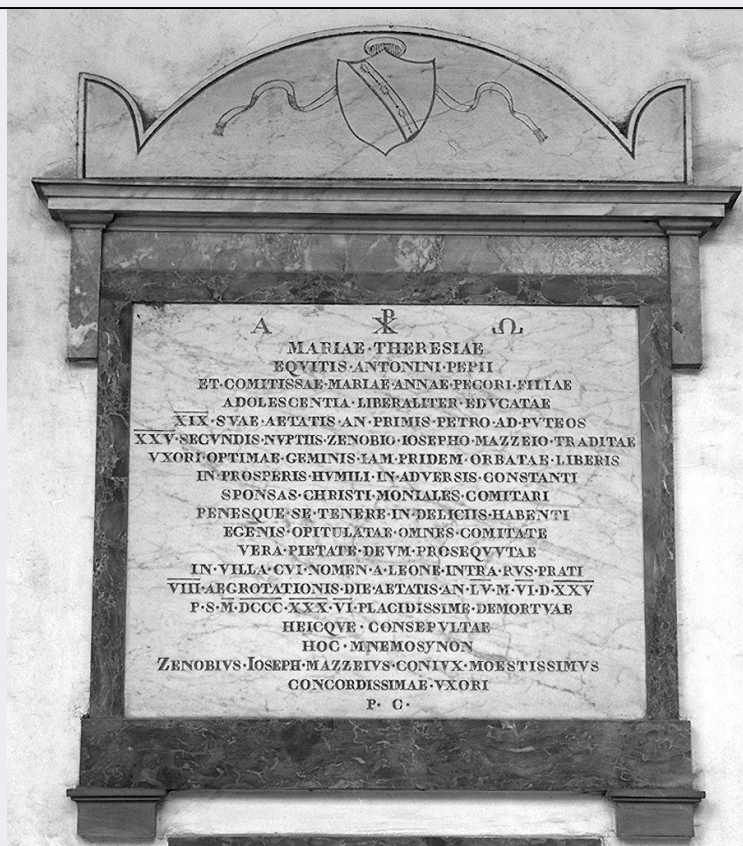 Α ☧ Ω
MARIAE·THERESIAE
EQVITIS·ANTONINI·PEPII
ET·COMITISSAE·MARIAE·ANNAE·PECORI·FILIAE
ADOLESCENTIA·LIBERALITER·EDVCATAE
XIX·SVAE·AETATIS·AN·PRIMIS·PETRO·AD·PVTEOS
XXV·SECVNDIS·NVPTIIS·ZENOBIO·IOSEPHO·MAZZEIO·TRADITAE
VXORI·OPTIMAE·GEMINIS·IAM·PRIDEM·ORBATAE·LIBERIS
IN·PROSPERIS·HVMILI·IN·ADVERSIS·CONSTANTI
SPONSAS·CHRISTI·MONIALES·COMITARI
PENESQUE·SE·TENERE·IN·DELICIIS·HABENTI
EGENIS·OPITULATAE·OMNES·COMITATE
VERA·PIETATE·DEVM·PROSEQVVTAE
IN·VILLA·CVI·NOMEN·A·LEONE·INTRA·RVS·PRATI
VIII·AEGROTATIONIS·DIE·AETATIS·AN·LV·M·VI·D·XXV
P·S·M·DCCC·XXX·VI·PLACIDISSIME·DEMORTVAE
HEICQVE·CONSEPVLTAE
HOC·MNEMOSYNON
ZENOBIVS·IOSEPH·MAZZEIVS·CONIVX·MOESTISSIMVS
CONCORDISSIMAE·VXORI
P·C·